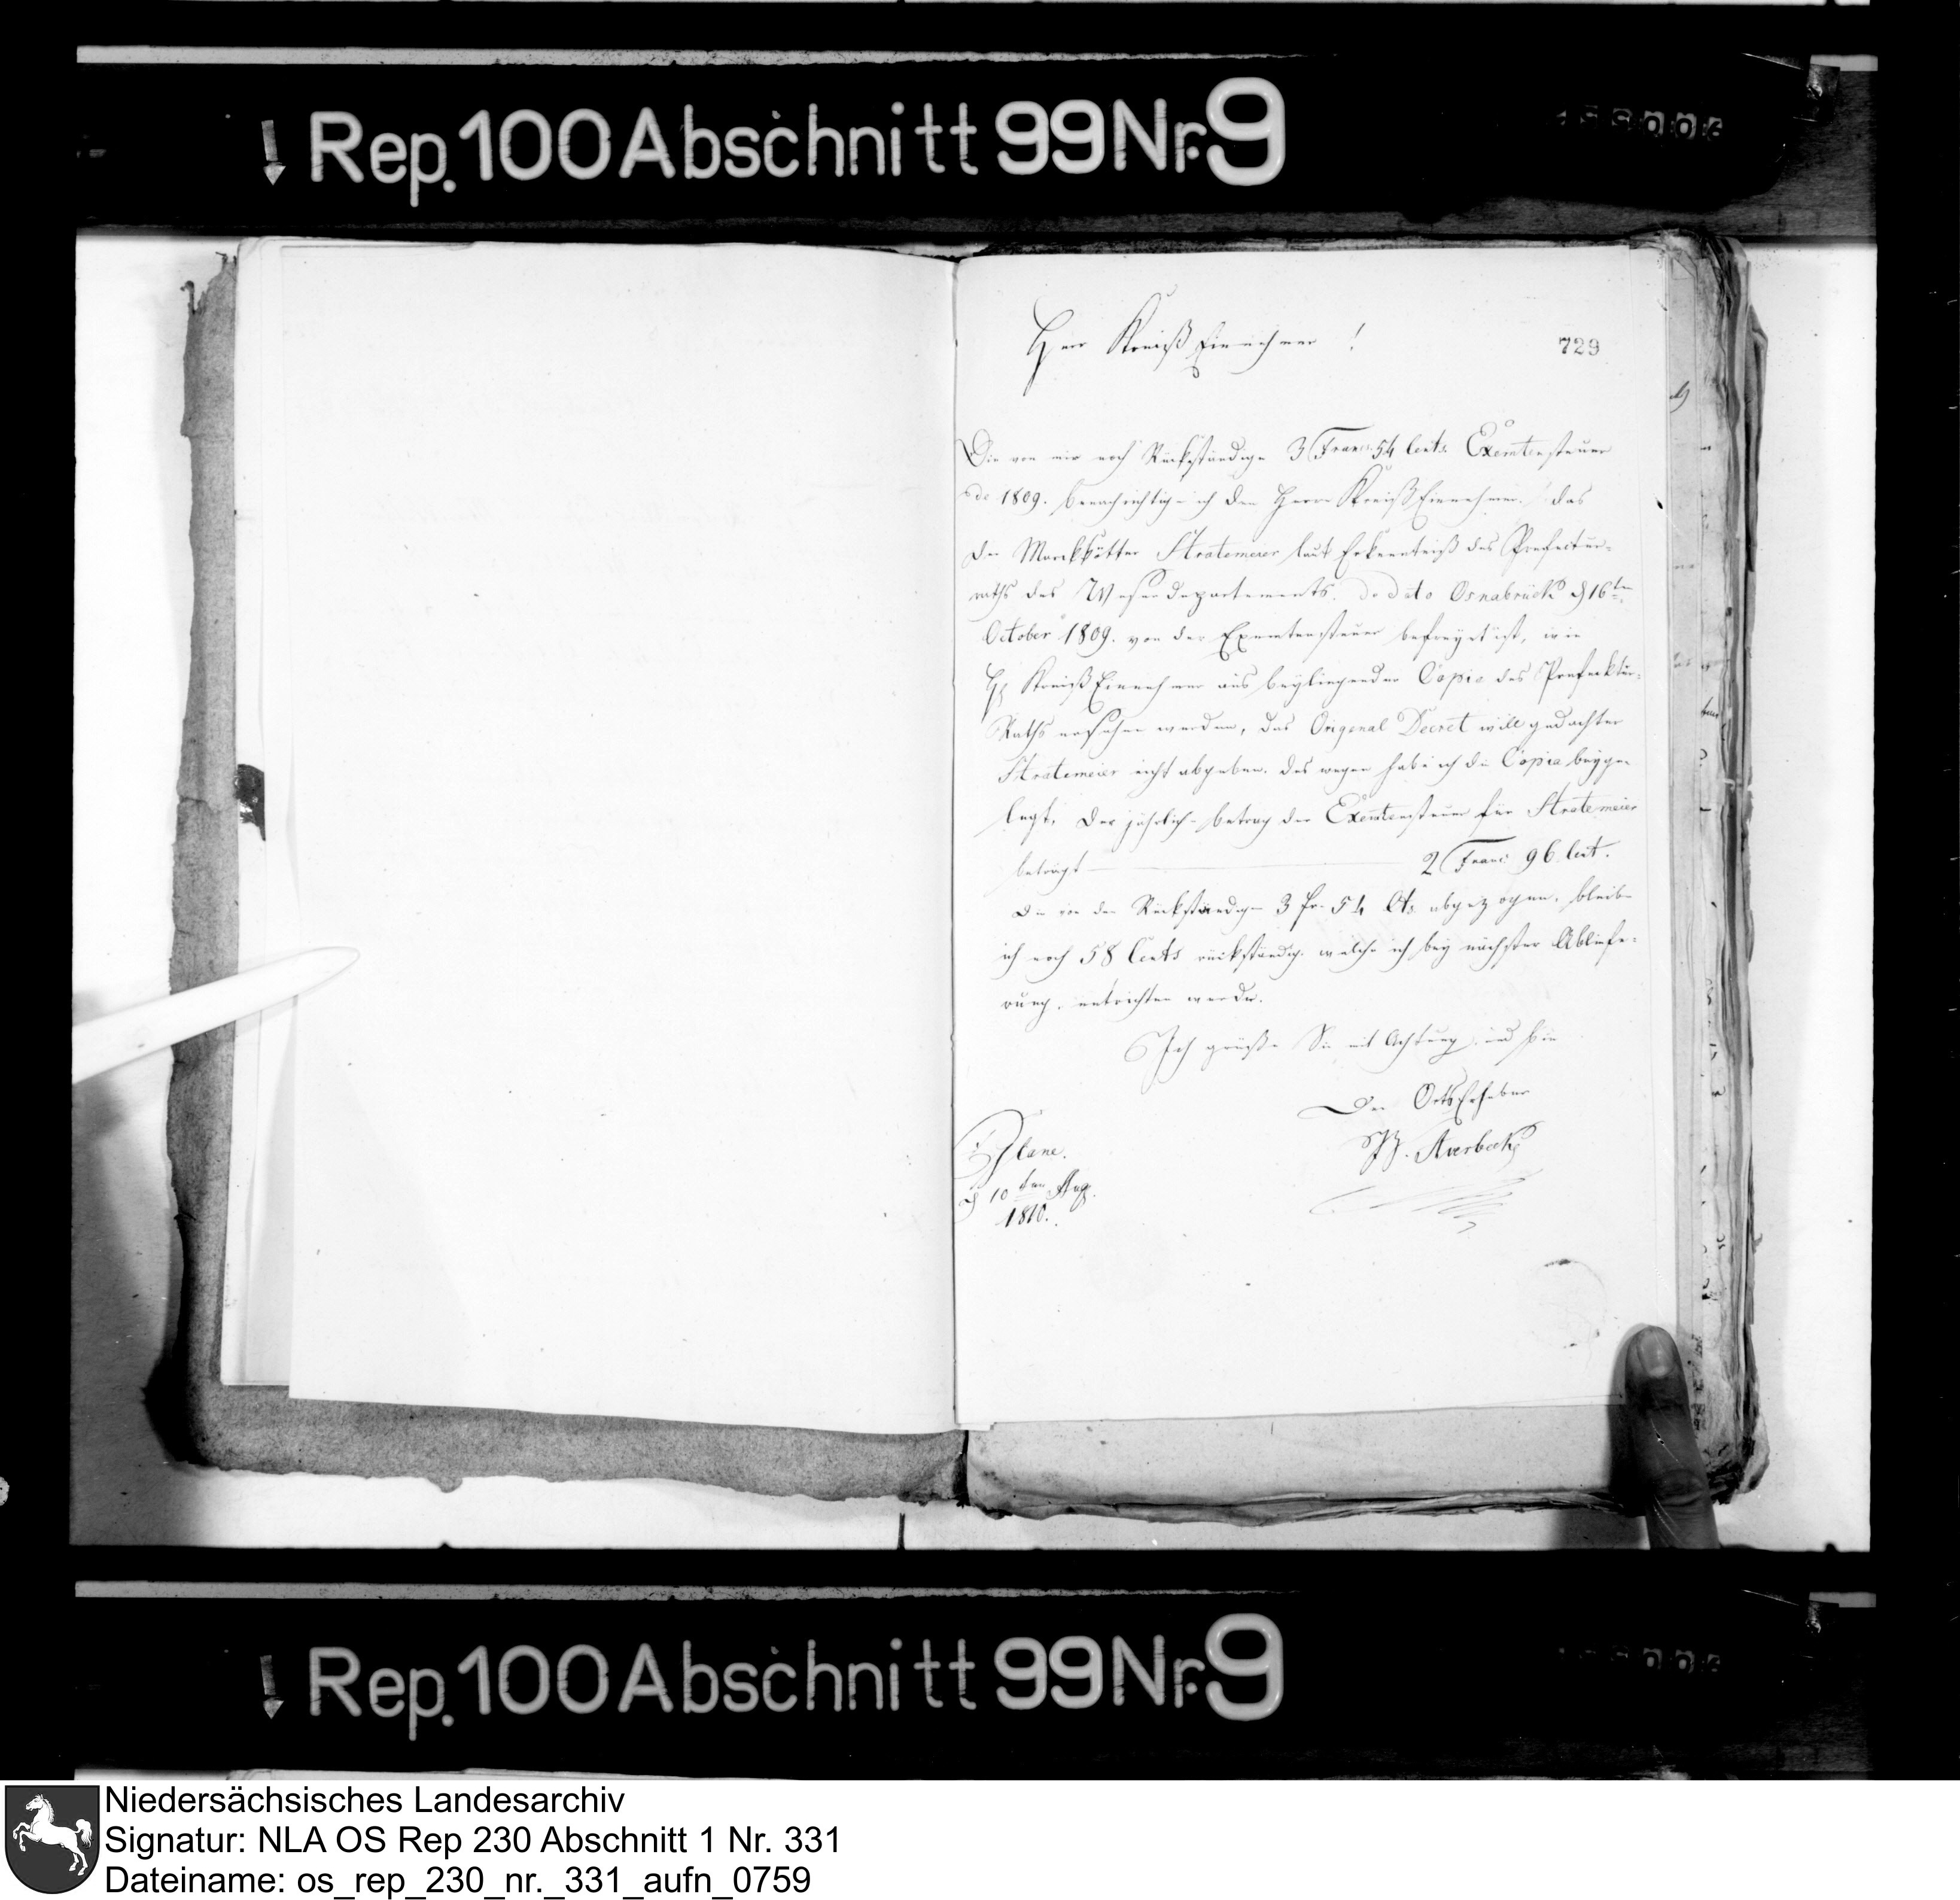 Rep. 100 Abschnitt 99 Nr. 9
Herr Kreiß Einnehmer !
729
Die von mir noch Rückständige 3 Franc 54 Cents. Exemtensteuer
de 1809. benachrichtige ich den Herrn Kreiß Einnehmer. das
der Marckkötter Stratemeier laut Erkenntniß des Prefectur-
raths des Weser departements. de dato Osnabrück d 16ten
October 1809. von der Exemtensteuer befreyet ist, wie
H Kreiß Einnehmer aus beyliegender Copia des Prefecktur-
Raths ersehen werden, das Origenal Decret will gedachter
Stratemeier nicht abgeben. des wegen habe ich die Copia beyge-
legt. Der jährliche betrag der Exemtensteuer für Stratemeier
beträgt 2 Franc 96 Cent.
Die von den Rückständigen 3 fr. 54 Cts. abgezogen. bleibe
ich noch 58 Cents rückständig. welche ich bey nächster Abliefe-
rung. entrichten werde.
Ich grüße Sie mit Achtung. und bin
Der Orts Erheber
Averbeck
Glane.
d 10ten Aug.
1810.
Rep. 100 Abschnitt 99 Nr. 9
Niedersächsisches Landesarchiv
Signatur: NLA OS Rep 230 Abschnitt 1 Nr. 331
Dateiname: os_rep_230_nr._331_aufn_0759